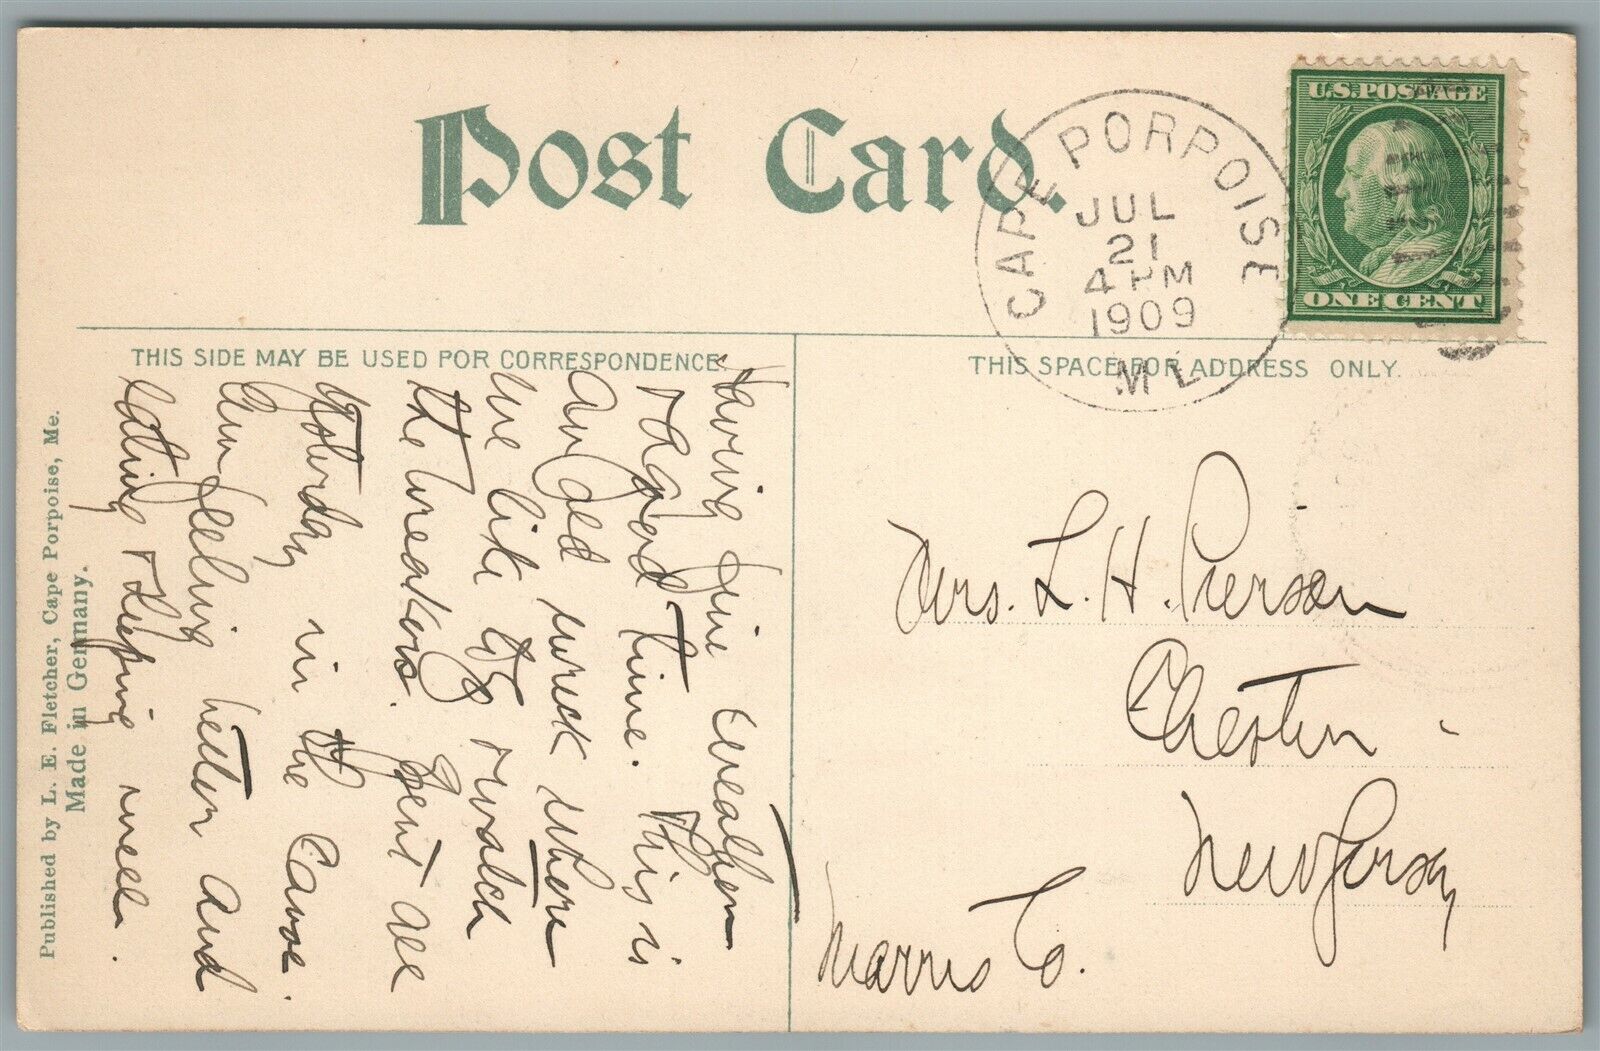 Post Card.
CAPE PORPOISE
JUL
21
4 PM
1909
ME
U.S. POSTAGE
ONE CENT
THIS SIDE MAY BE USED FOR CORRESPONDENCE
THIS SPACE FOR ADDRESS ONLY.
Having fine weather
ragged time. This is
an old wreck where
we like to watch
the breakers. Spent all
yesterday in the Canoe.
Am feeling better and
eating & sleeping well.
Mrs. L. H. Pierson
Chester
New Jersey
Morris Co.
Published by L. E. Fletcher, Cape Porpoise, Me.
Made in Germany.